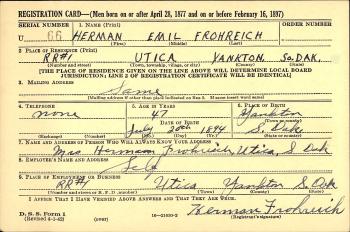 REGISTRATION CARD—(Men born on or after April 28, 1877 and on or before February 16, 1897)
SERIAL NUMBER 1. NAME (Print) ORDER NUMBER
U 66 HERMAN EMIL FROHREICH
(First) (Middle) (Last)
2. PLACE OF RESIDENCE (Print)
RR#1 UTICA YANKTON So.DAK.
(Number and street) (Town, township, village, or city) (County) (State)
[THE PLACE OF RESIDENCE GIVEN ON THE LINE ABOVE WILL DETERMINE LOCAL BOARD
JURISDICTION; LINE 2 OF REGISTRATION CERTIFICATE WILL BE IDENTICAL]
3. MAILING ADDRESS
Same
[Mailing address if other than place indicated on line 2. If same insert word same]
4. TELEPHONE 5. AGE IN YEARS 6. PLACE OF BIRTH
none 47 Yankton
DATE OF BIRTH (Town or county)
July 20th 1894 S. Dak
(Exchange) (Number) (Mo.) (Day) (Yr.) (State or country)
7. NAME AND ADDRESS OF PERSON WHO WILL ALWAYS KNOW YOUR ADDRESS
Mrs Hermann Frohreich, Utica, S Dak
8. EMPLOYER'S NAME AND ADDRESS
Self
9. PLACE OF EMPLOYMENT OR BUSINESS
RR#1 Utica Yankton S. Dak
(Number and street or R. F. D. number) (Town) (County) (State)
I AFFIRM THAT I HAVE VERIFIED ABOVE ANSWERS AND THAT THEY ARE TRUE.
D. S. S. Form 1
(Revised 4-1-42) (over) 16—21630-2
Herman Frohreich
(Registrant's signature)